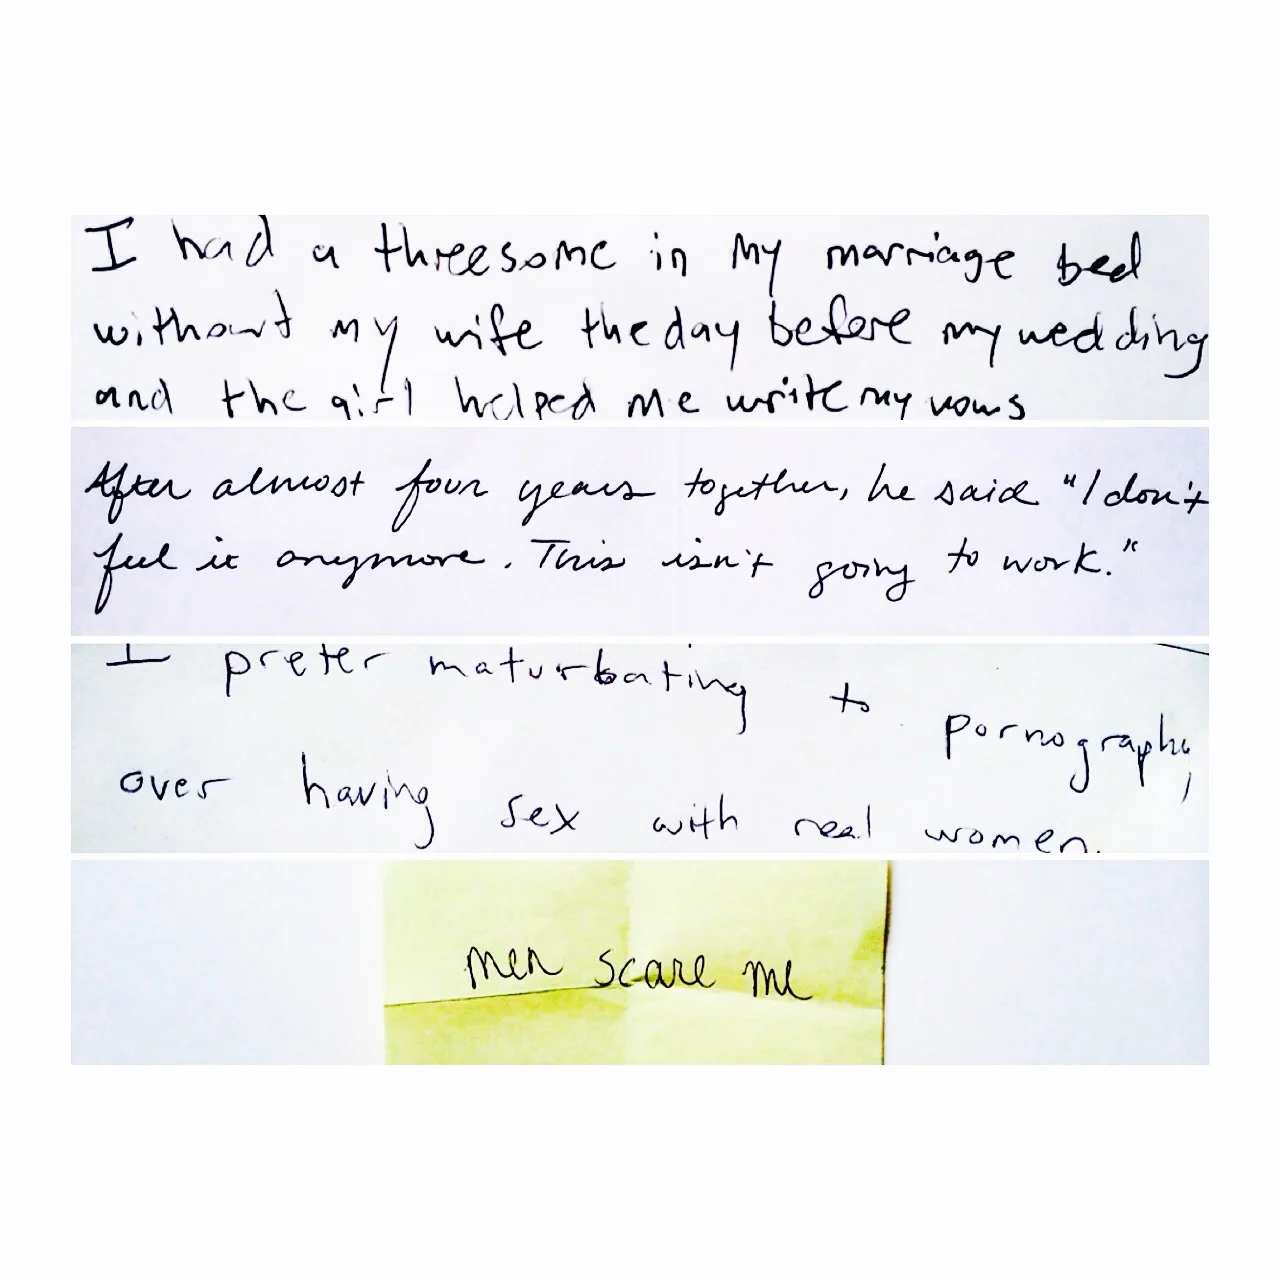 I had a threesome in my marriage bed
without my wife the day before my wedding
and the girl helped me write my vows
After almost four years together, he said "I don't
feel it anymore. This isn't going to work."
I prefer maturbating to pornography
over having sex with real women.
men scare me